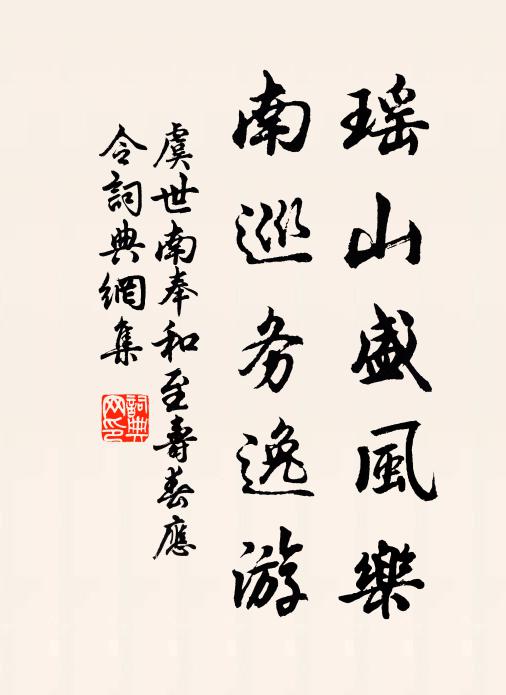 瑶山盛風樂
南巡务逸游
虞世南奉和至壽春應
令詞典網集
詞典网印